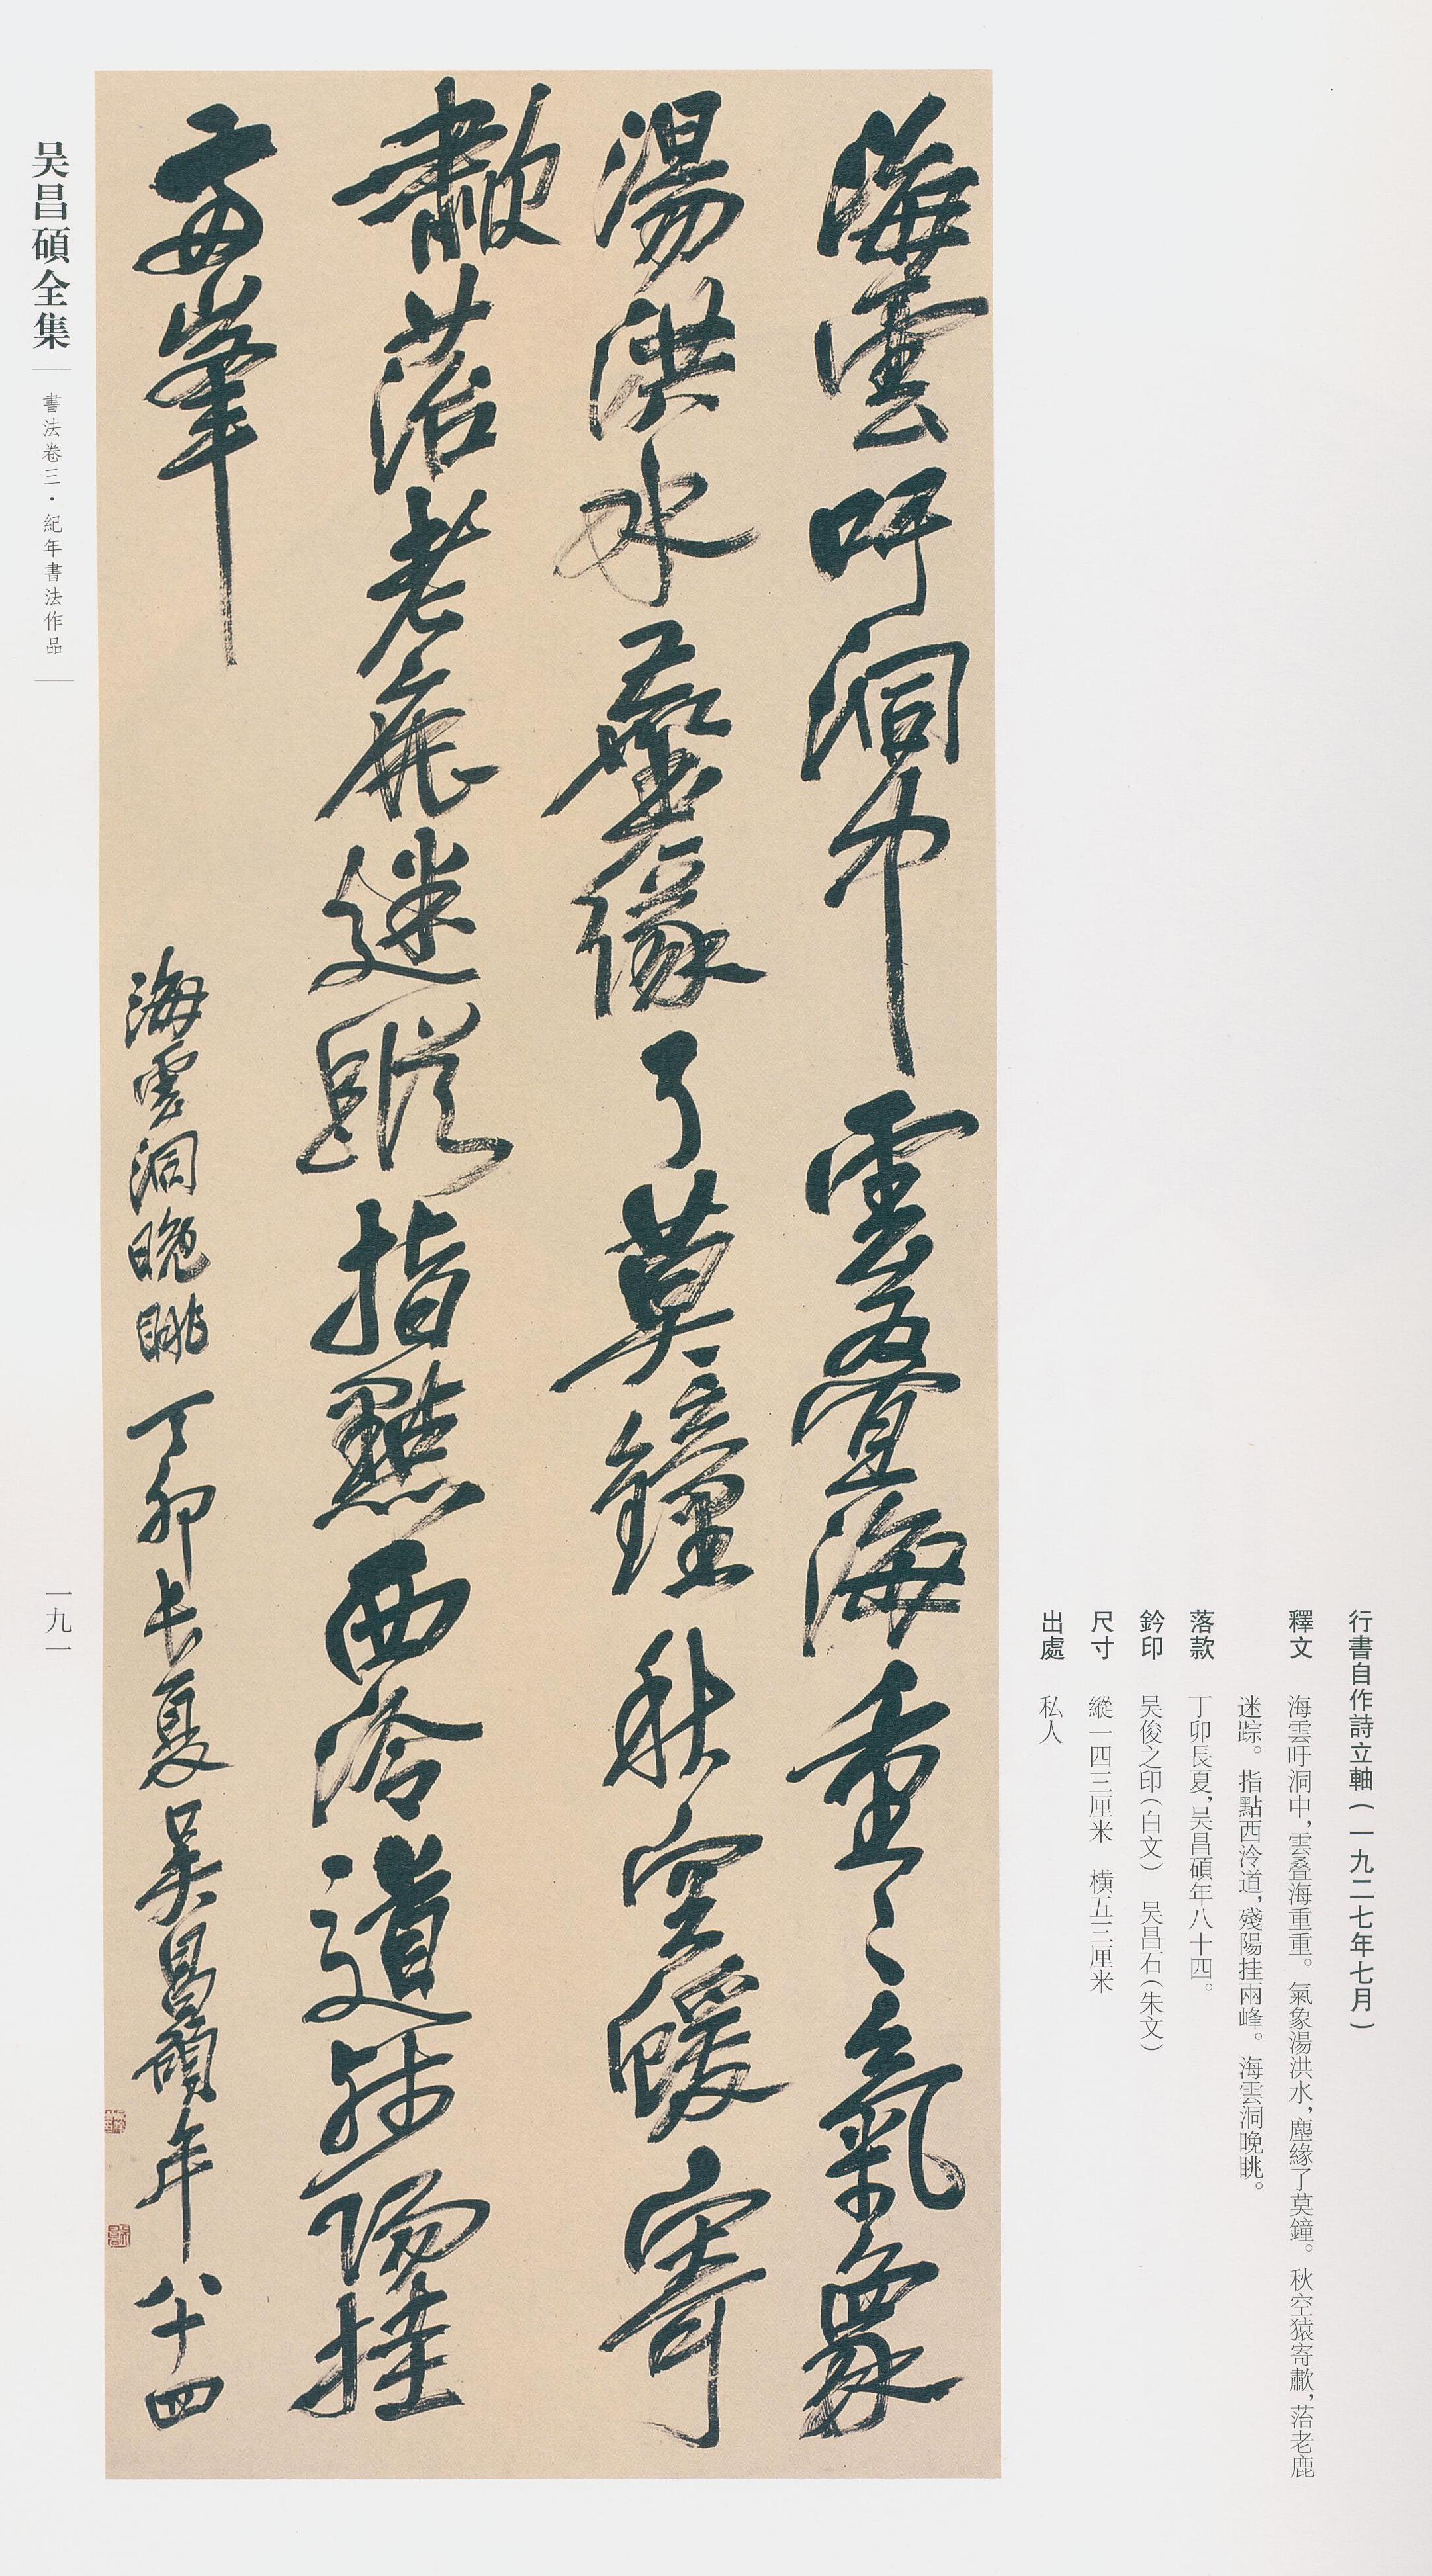 行書自作詩立軸(一九二七年七月)
釋文 海雲吁洞中,雲叠海重重。氣象湯洪水,塵緣了莫鐘。秋空猿寄歗,菭老鹿
迷踪。指點西泠道,殘陽挂兩峰。海雲洞晚眺。
落款 丁卯長夏,吴昌碩年八十四。
鈐印 吴俊之印(白文) 吴昌石(朱文)
尺寸 縱一四三厘米 橫五三厘米
出處 私人
海雲吁洞中雲叠海重〻氣象
湯洪水塵緣了莫鐘秋空猨寄
歗菭老鹿迷蹤指點西泠道殘陽挂
兩峯
海雲洞晚眺丁卯長夏吴昌碩年八十四
吴昌碩全集
書法卷三·紀年書法作品
一九一